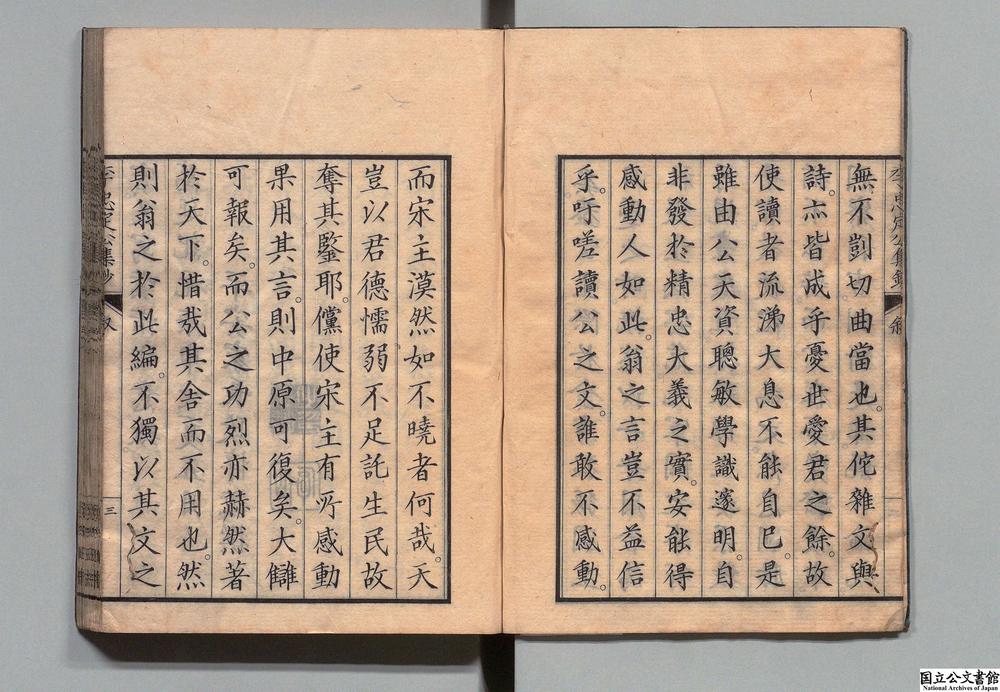 無不剴切曲當也。其佗雜文與
詩。亦皆成乎憂世愛君之餘。故
使讀者流涕大息不能自已。是
雖由公天資聰敏學識邃明。自
非發於精忠大義之實。安能得
感動人如此。翁之言豈不益信
乎。吁嗟讀公之文誰敢不感動。
而宋主漠然如不曉者何哉。天
豈以君德懦弱。不足託生民故
奪其鑒耶。儻使宋主有所感動
果用其言。則中原可復矣。大讎
可報矣。而公之功烈亦赫然著
於天下。惜哉其舍而不用也。然
則翁之於此編。不獨以其文之
李忠定公集鈔
三
国立公文書館
National Archives of Japan